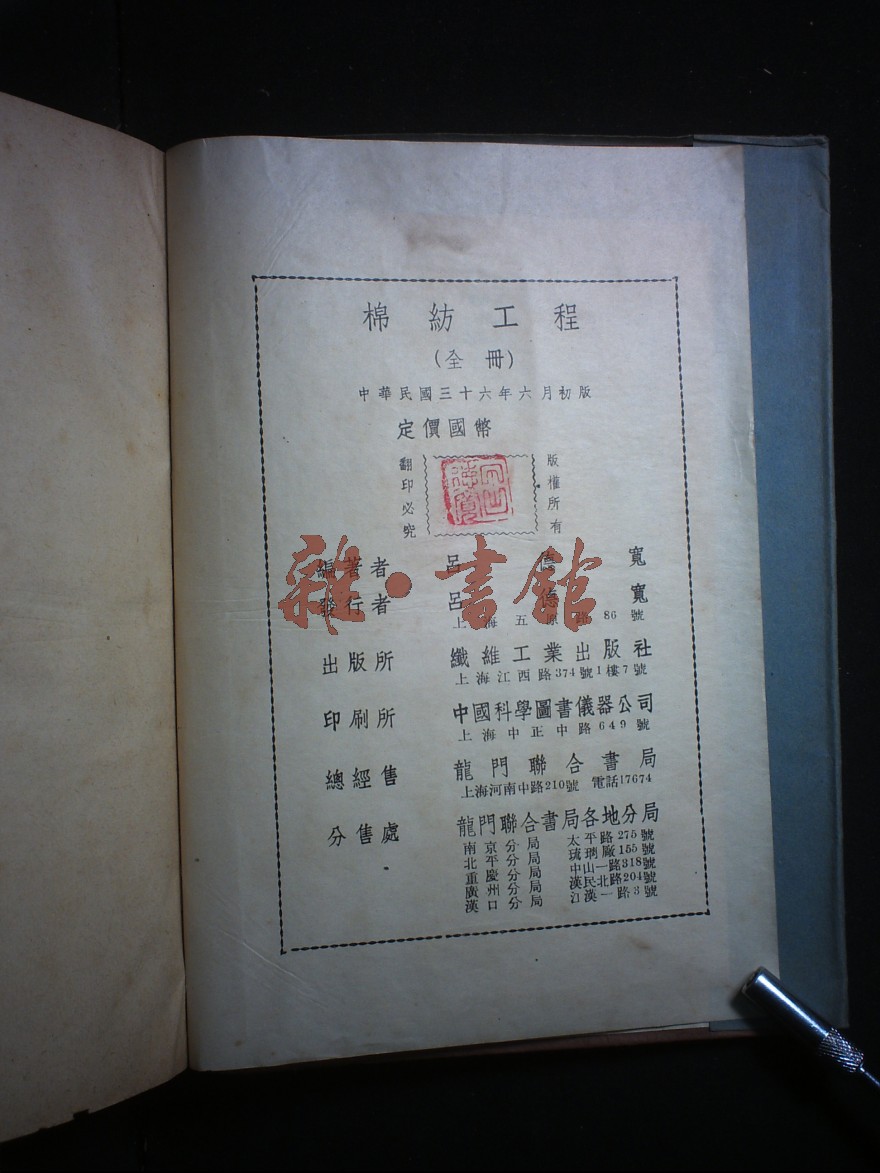 棉紡工程
(全冊)
中華民國三十六年六月初版
定價國幣
版權所有
翻印必究
編著者 呂德寬
發行者 呂德寬
上海五原路86號
出版所 纖維工業出版社
上海江西路374號1樓7號
印刷所 中國科學圖書儀器公司
上海中正中路649號
總經售 龍門聯合書局
上海河南中路210號 電話17674
分售處 龍門聯合書局各地分局
南京分局 太平路275號
北平分局 琉璃厰155號
重慶分局 中山一路318號
廣州分局 漢民北路204號
漢口分局 江漢一路3號
雜·書館